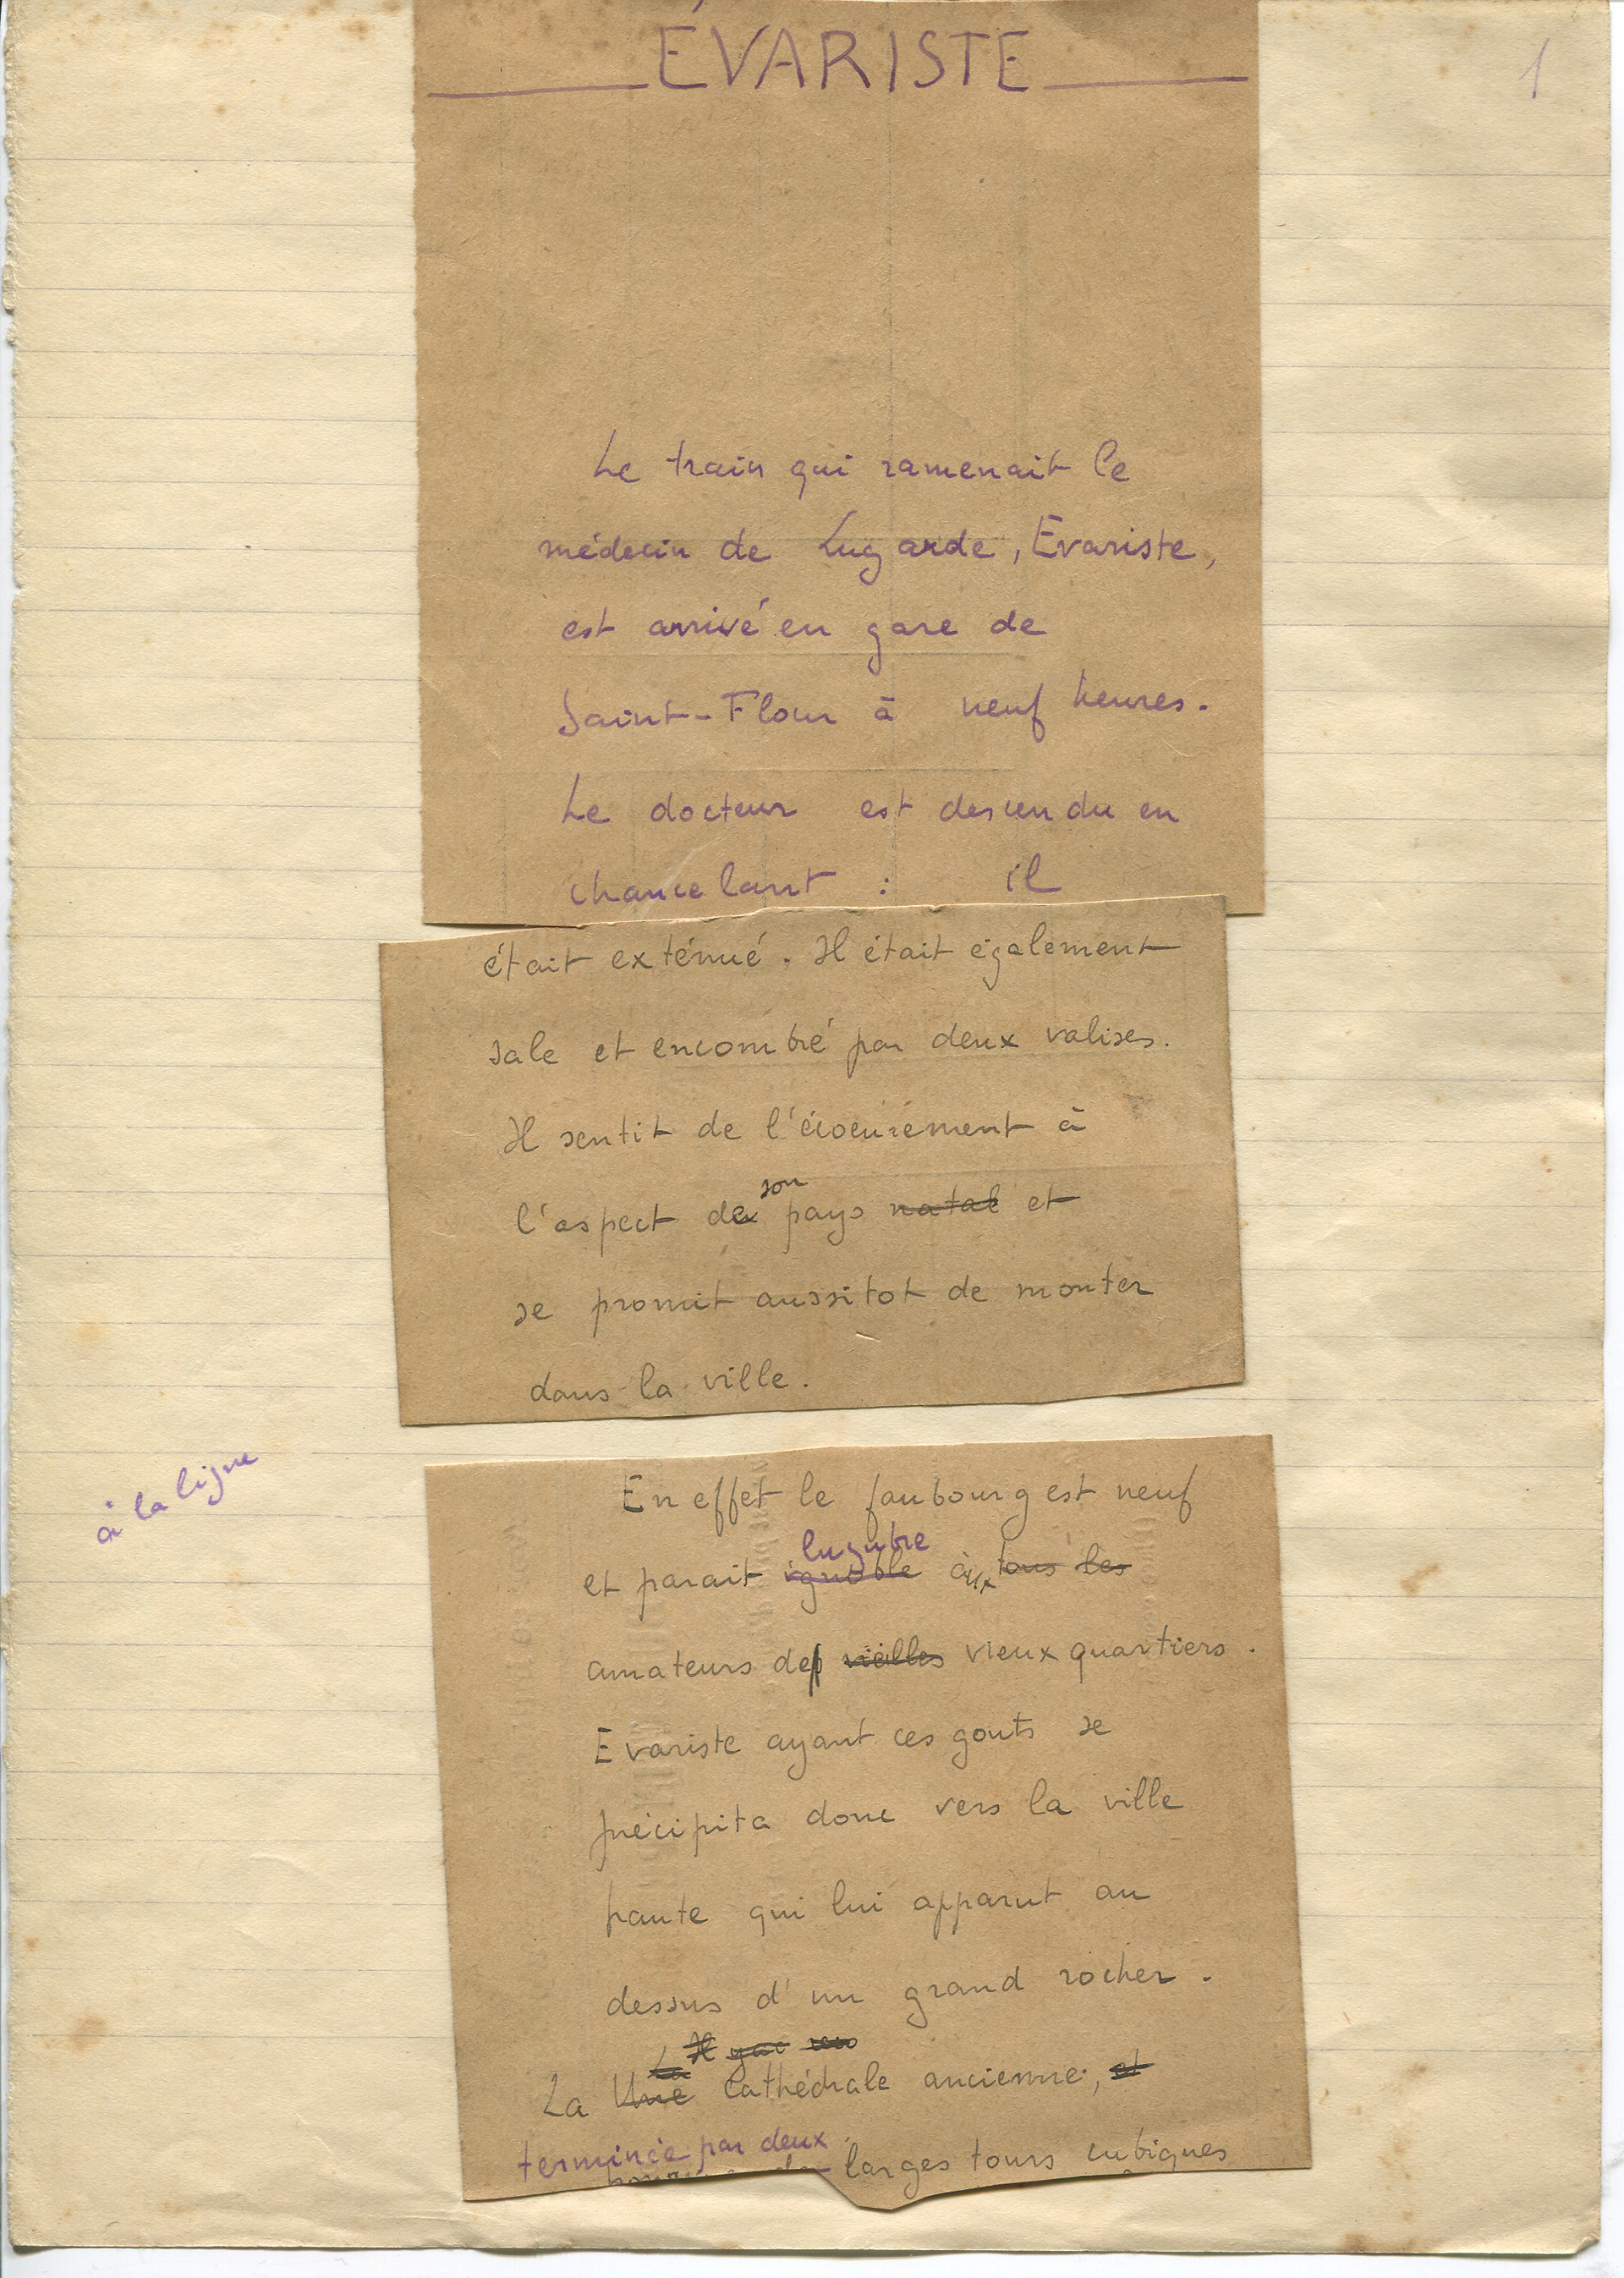 ÉVARISTE
1
Le train qui ramenait le
médecin de Lugarde, Evariste,
est arrivé en gare de
Saint-Flour à neuf heures.
Le docteur est descendu en
chancelant : il
était exténué. Il était également
sale et encombré par deux valises.
Il sentit de l'écoeurement à
son
l'aspect de pays natal et
se promit aussitot de monter
dans la ville.
à la ligne
En effet le faubourg est neuf
lugubre
et parait ignoble aux tous les
amateurs de vieilles vieux quartiers.
Evariste ayant ces gouts se
précipita donc vers la ville
haute qui lui apparut au
dessus d'un grand rocher.
La Il
La Une Cathédrale ancienne, et
terminée par deux
larges tours cubiques